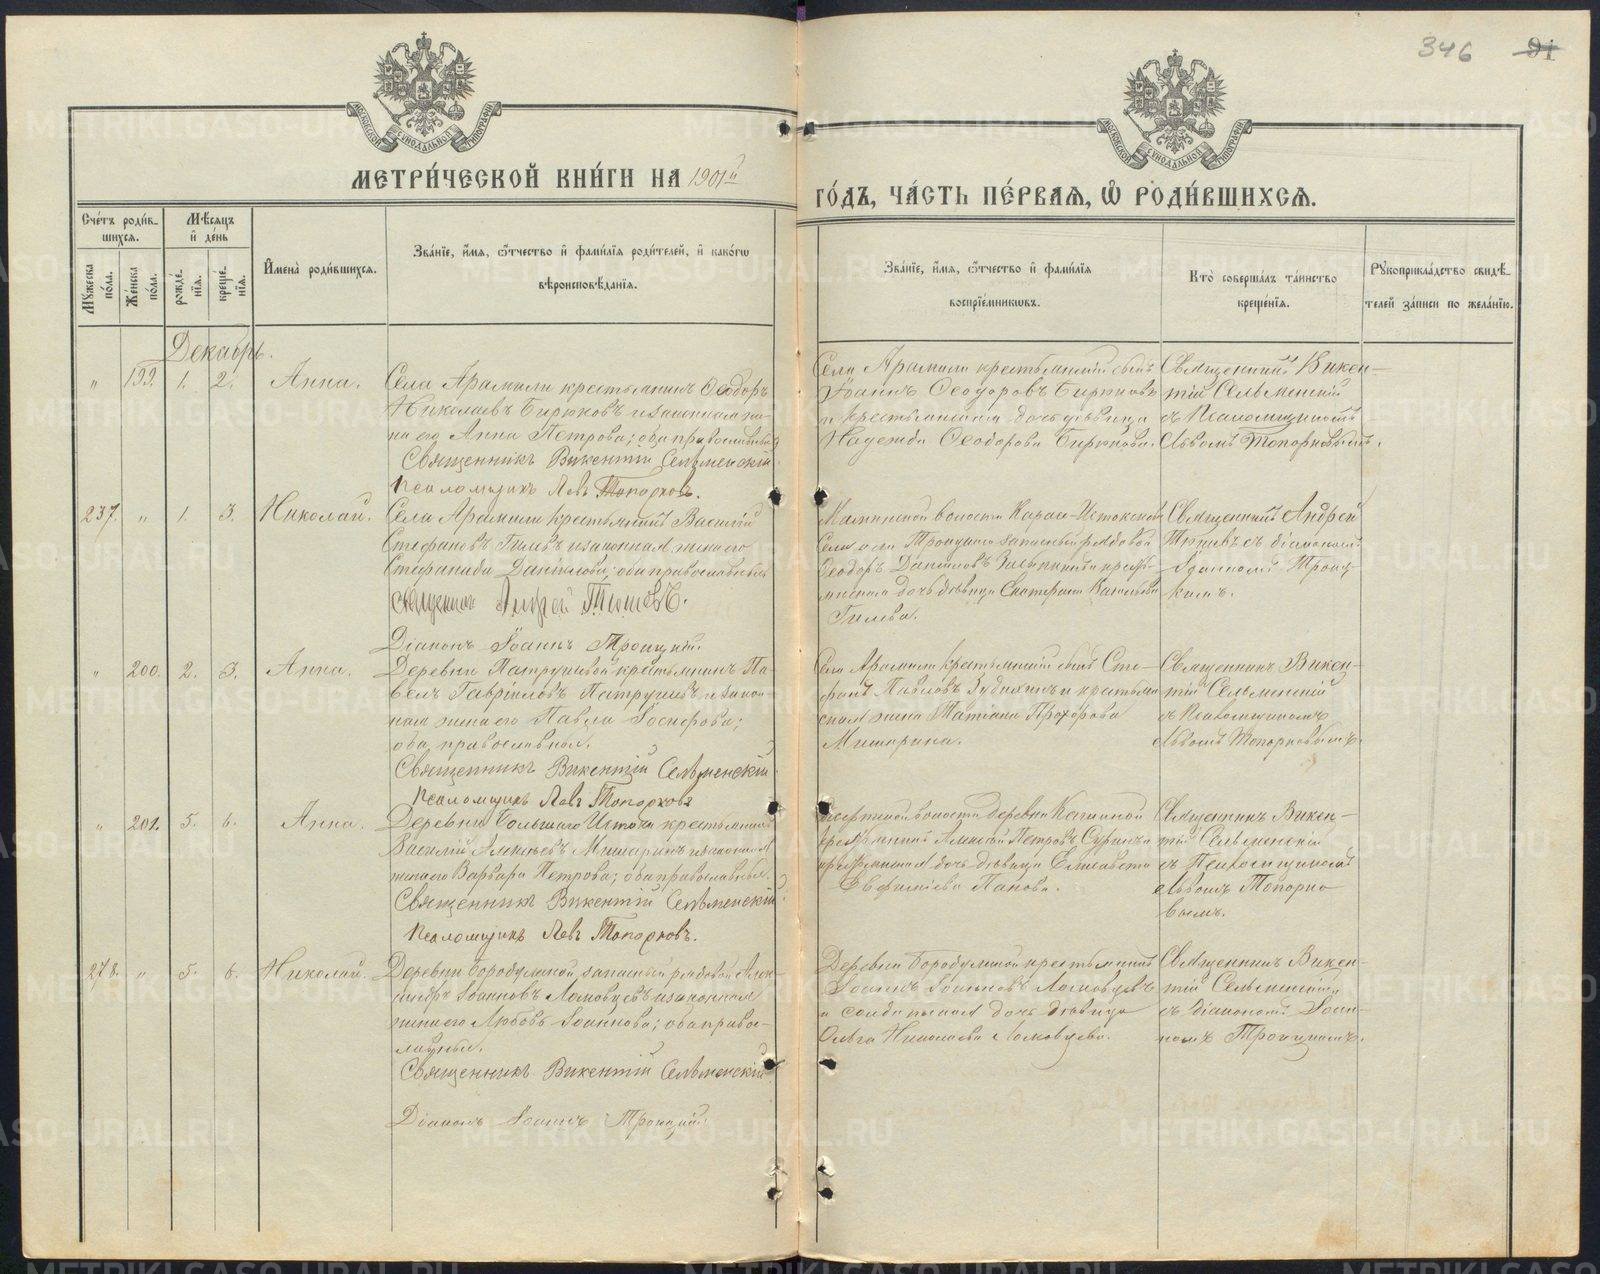 346 91
МЕТРИ́ЧЕСКОЙ КНИ́ГИ НА 1901й
ГО́ДЪ, ЧА́СТЬ ПЕ́РВАЯ, Ѿ РОДИ́ВШИХСЯ.
МОСКОВСКОЙ СѴНОДАЛЬНОЙ ТИПОГРАФІИ
МОСКОВСКОЙ СѴНОДАЛЬНОЙ ТИПОГРАФІИ
Сче́тъ роди́в-
шихся.
Мѣ́сяцъ
и҆ де́нь
Му́жеска по́ла.
Же́нска по́ла.
рожде́нія.
креще́нія.
И҆мена̀ роди́вшихся.
Зва́ніе, и҆́мя, ѻ҆́тчество и҆ фами́лія роди́телей, и҆ како́гѡ
вѣроисповѣ́данія.
Зва́ніе, и҆́мя, ѻ҆́тчество и҆ фами́лія
воспріе́мниковъ.
Кто̀ соверша́лъ та́инство
креще́нія.
Рꙋкоприкла́дство свидѣ́-
телей за́писи по жела́нію.
Декабрь.
" 199. 1. 2. Анна.
Села Арамили крестьянинъ Ѳеодоръ
Николаевъ Бирюковъ и законная же-
на его Анна Петрова; оба православные
Священникъ Викентій Сельменскій
Псаломщикъ Левъ Топорковъ.
Села Арамили крестьянскій сынъ
Іоаннъ Ѳеодоровъ Бирюковъ
и крестьянская дочь дѣвица
Надежда Ѳеодорова Бирюкова.
Священникъ Викен-
тій Сельменскій
съ Псаломщикомъ
Львомъ Топорковымъ.
237. " 1. 3. Николай.
Села Арамили крестьянинъ Василій
Стефановъ Гилевъ и законная жена его
Степанида Данилова; оба православные
Священникъ Андрей Тишевъ.
Діаконъ Іоаннъ Троицкій.
волости
Села запасный рядовой
Ѳеодоръ Даниловъ и кресть-
янская дочь дѣвица Екатерина Васильева
Гилева.
Священникъ Андрей
съ діакономъ
Іоанномъ Троиц-
кимъ.
" 200. 2. 3. Анна.
Деревни Патрушевой крестьянинъ Па-
велъ Гавріиловъ Патрушевъ и закон-
ная жена его Павла Іосифова;
оба православные.
Священникъ Викентій Сельменскій
Псаломщикъ Левъ Топорковъ
Села Арамили крестьянскій сынъ Сте-
фанъ Павловъ и крестьян-
ская жена Татіана Прохорова
Мишарина.
Священникъ Викен-
тій Сельменскій
съ Псаломщикомъ
Львомъ Топорковымъ.
" 201. 5. 6. Анна.
Деревни Большаго Истока крестьянинъ
Василій Алексѣевъ Мишаринъ и законная
жена его Варвара Петрова; оба православные.
Священникъ Викентій Сельменскій
Псаломщикъ Левъ Топорковъ.
волости деревни
Алексѣй Петровъ
крестьянская дочь дѣвица Елисавета
Евфиміева Панова.
Священникъ Викен-
тій Сельменскій
съ Псаломщикомъ
Львомъ Топорко-
вымъ.
278. " 5. 6. Николай.
Деревни Бородулиной запасный рядовой Алек-
сандръ Іоанновъ Ломовцевъ и законная
жена его Любовь Іоаннова; оба право-
славные.
Священникъ Викентій Сельменскій
Діаконъ Іоаннъ Троицкій
Деревни Бородулиной крестьянинъ
Іоаннъ Іоанновъ Ломовцевъ
и солдатская дочь дѣвица
Ольга Николаева Ломовцева.
Священникъ Викен-
тій Сельменскій
съ діакономъ Іоан-
номъ Троицкимъ.
METRIKI.GASO-URAL.RU